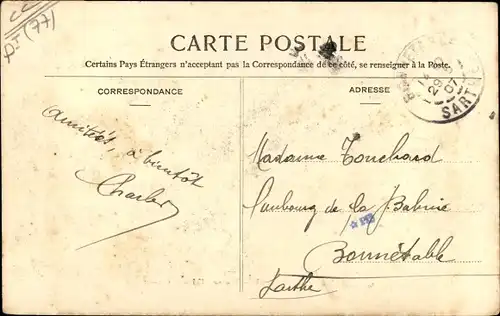 (77)
CARTE POSTALE
Certains Pays Étrangers n'acceptant pas la Correspondance de ce côté, se renseigner à la Poste.
CORRESPONDANCE
ADRESSE
SART
29
07
Amitiés, à bientôt
Charles
Madame Touchard
Faubourg de la
Bonnétable
Sarthe